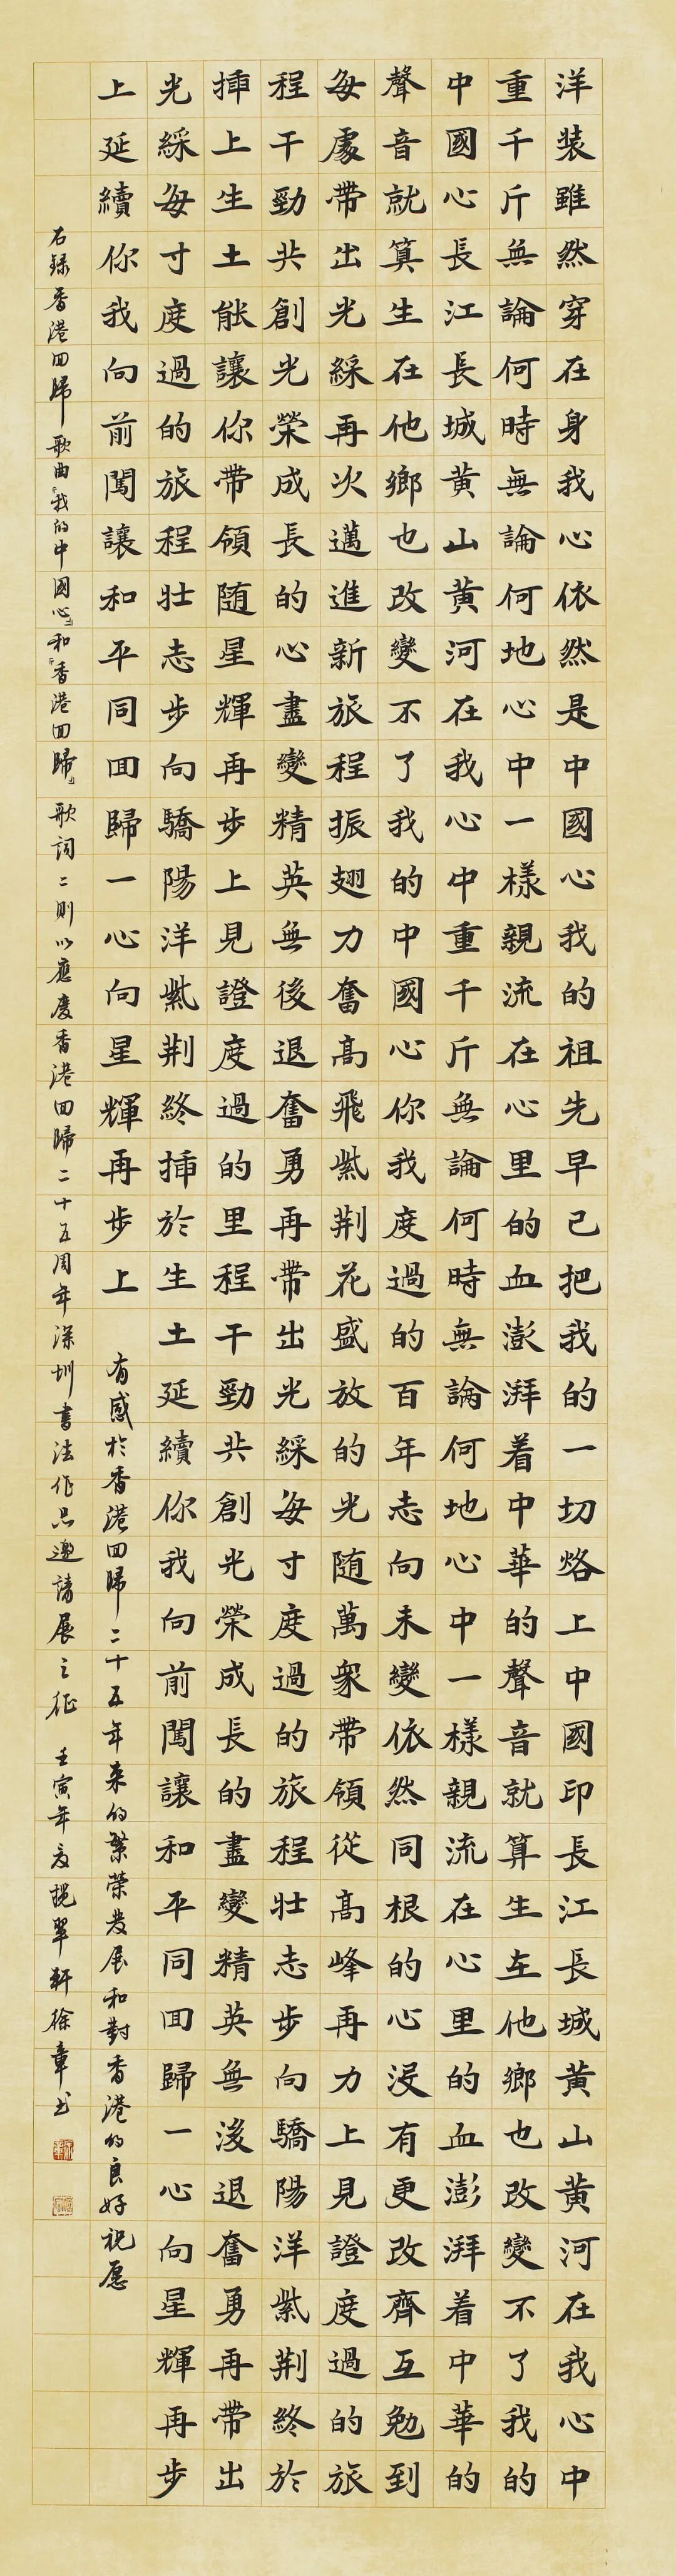 洋装雖然穿在身我心依然是中國心我的祖先早己把我的一切烙上中國印長江長城黄山黄河在我心中
重千斤無論何時無論何地心中一樣親流在心里的血澎湃着中華的聲音就算生在他鄉也改變不了我的
中國心長江長城黄山黄河在我心中重千斤無論何時無論何地心中一樣親流在心里的血澎湃着中華的
聲音就算生在他鄉也改變不了我的中國心你我度過的百年志向未變依然同根的心没有更改齊互勉到
每處帶出光綵再次邁進新旅程振翅力奮高飛紫荆花盛放的光随萬衆帶領從高峰再力上見證度過的旅
程干勁共創光榮成長的心盡變精英無後退奮勇再帶出光綵每寸度過的旅程壯志步向驕陽洋紫荆終於
揷上生土能讓你帶領随星輝再步上見證度過的里程干勁共創光榮成長的盡變精英無後退奮勇再帶出
光綵每寸度過的旅程壯志步向驕陽洋紫荆終揷於生土延續你我向前闖讓和平同回歸一心向星輝再步
上延續你我向前闖讓和平同回歸一心向星輝再步上
有感於香港回歸二十五年来的繁荣发展和對香港的良好祝愿
右録香港回歸歌曲《我的中國心》和《香港回歸》歌词二則以應慶香港回歸二十五周年深圳書法作品邀請展之征 壬寅年夏挹翠軒徐章书